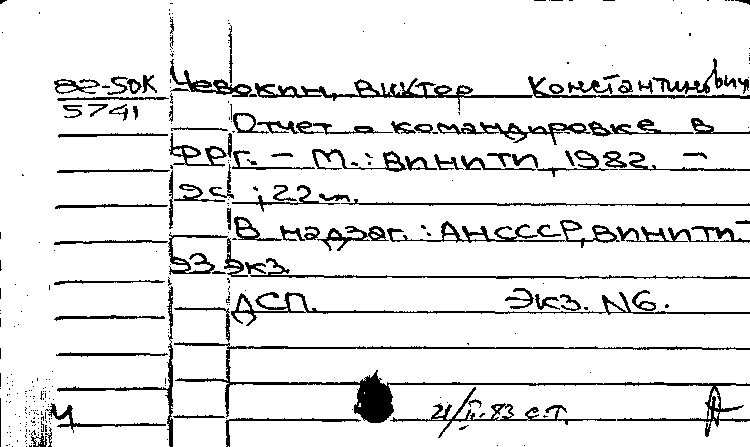 82-50К Чевокин, Виктор Константинович
5741
Отчет о командировке в
ФРГ. – М.: ВИНИТИ, 1982. –
9с. ; 22 см.
В надзаг.: АН СССР, ВИНИТИ –
93 экз.
ДСП. Экз. N6.
Ч 21/II-83 с.т.